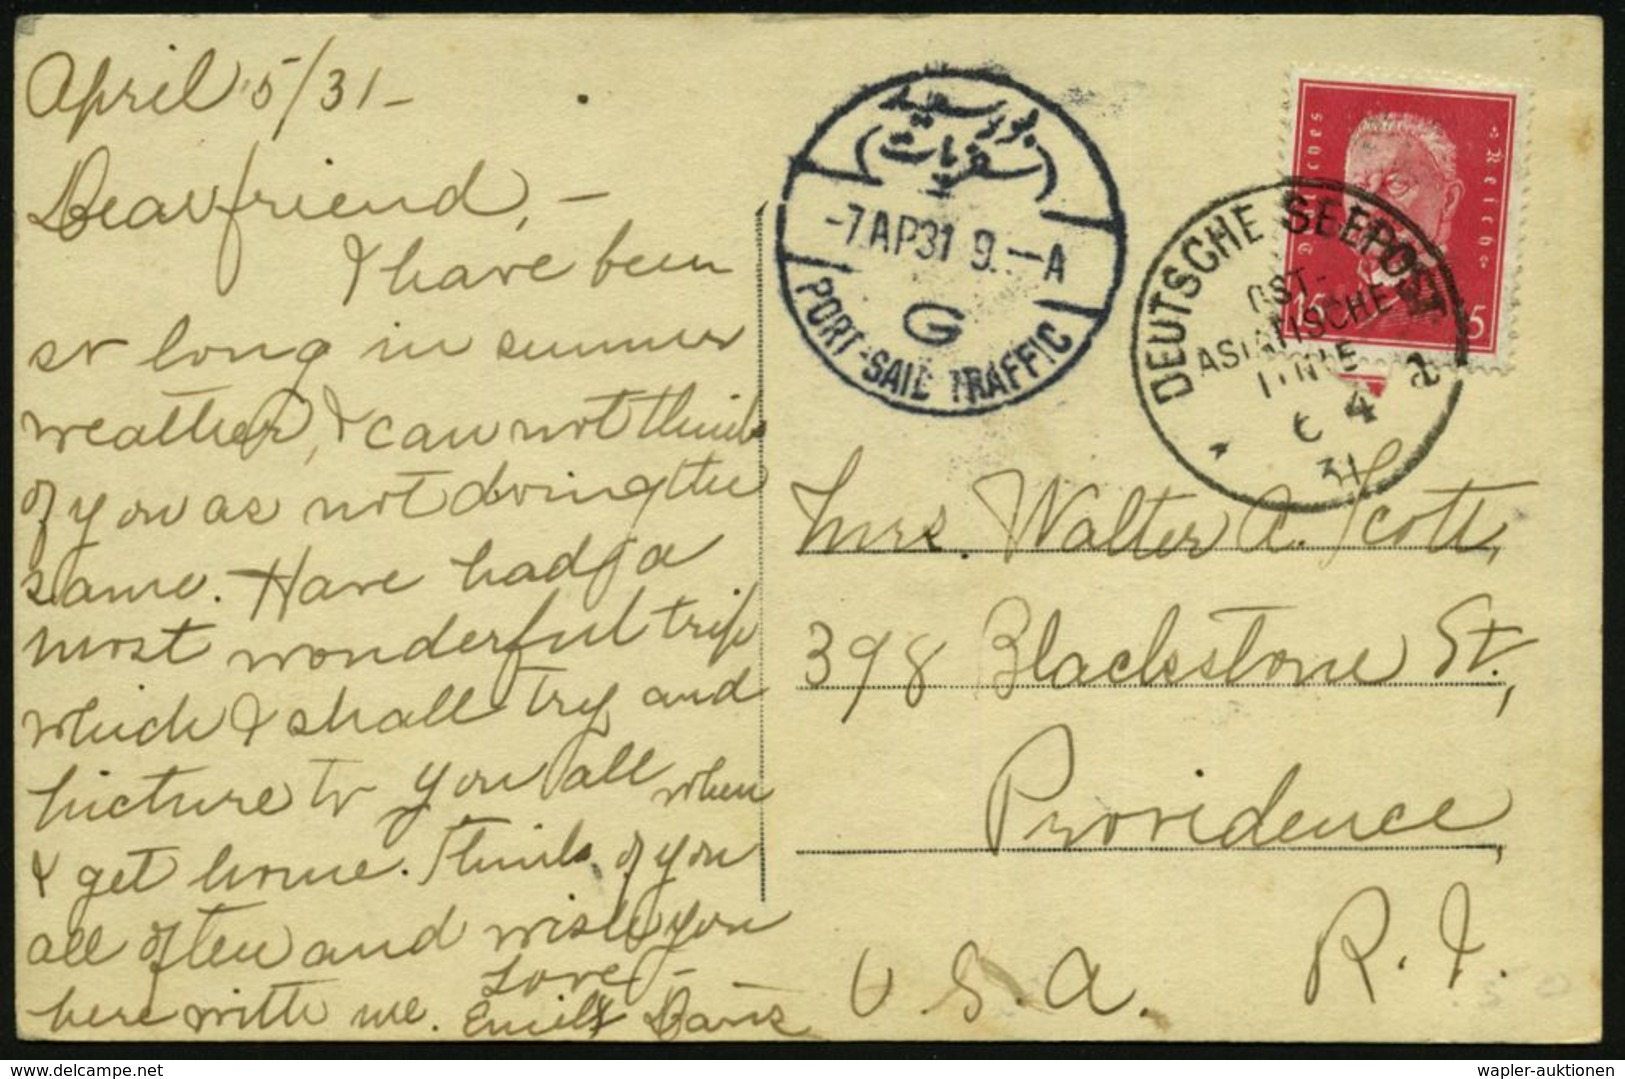 April 5/31 -
Dear friend, -
I have been
so long in summer
weather, I can not think
of you as not doing the
same. Have had a
most wonderful trip
which I shall try and
picture to you all when
I get home. Think of you
all often and wish you
here with me. Love -
Davis
بور سعيد
(سفريات)
-7 AP 31 9.—A
G
PORT-SAID TRAFFIC
Deutsches Reich
15 15
DEUTSCHE SEEPOST
OST-
ASIATISCHE
LINIE
a
6 4
31
Mrs. Walter A. Scott,
398 Blackstone St.,
Providence,
R. I.
U. S. A.
delcampe.net
wapler-auktionen